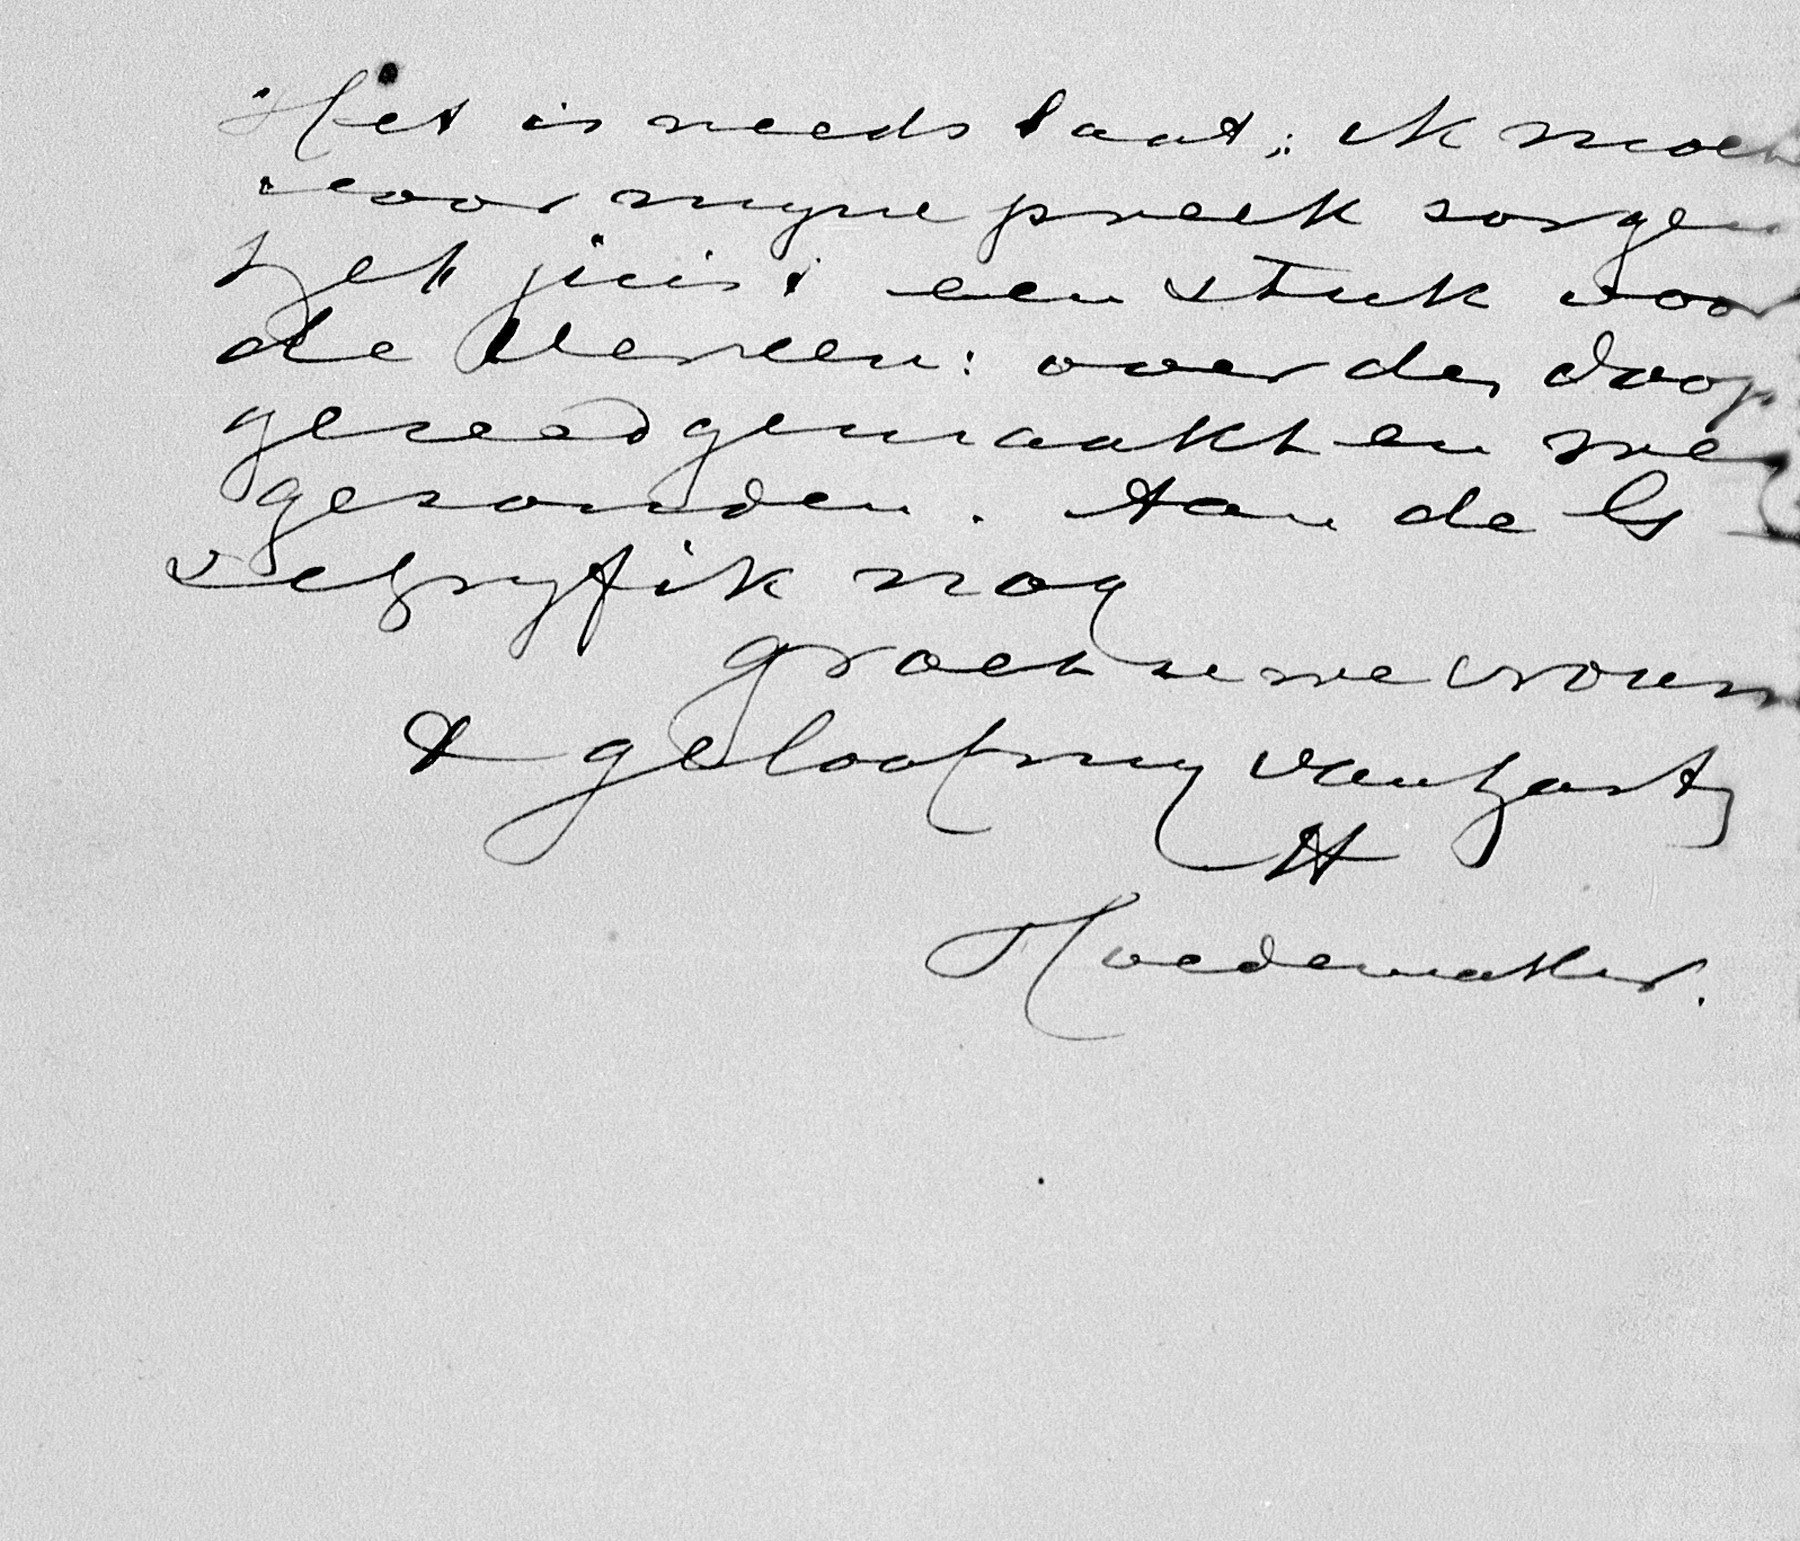 Het is reeds laat; ik moet
voor myne preek zorgen
heb juist een stuk voor
de Vereen: over den doop
gereed gemaakt en weg
gezonden. Aan de G
schryf ik nog
groet uwe vrouw
& geloof my van hart
tt
Hoedemaker.